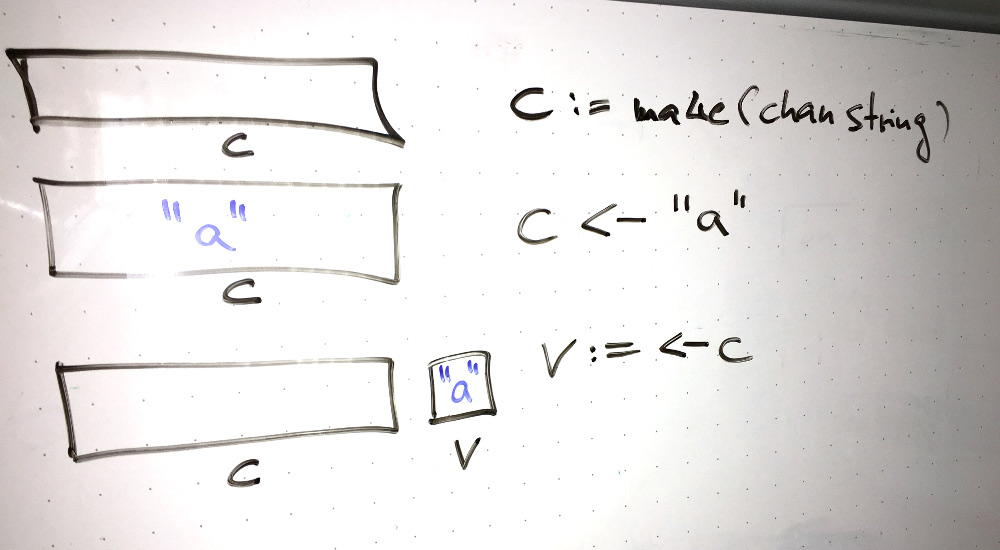 C
C := make(chan string)
"a"
C
C <- "a"
C
"a"
V
V := <- C